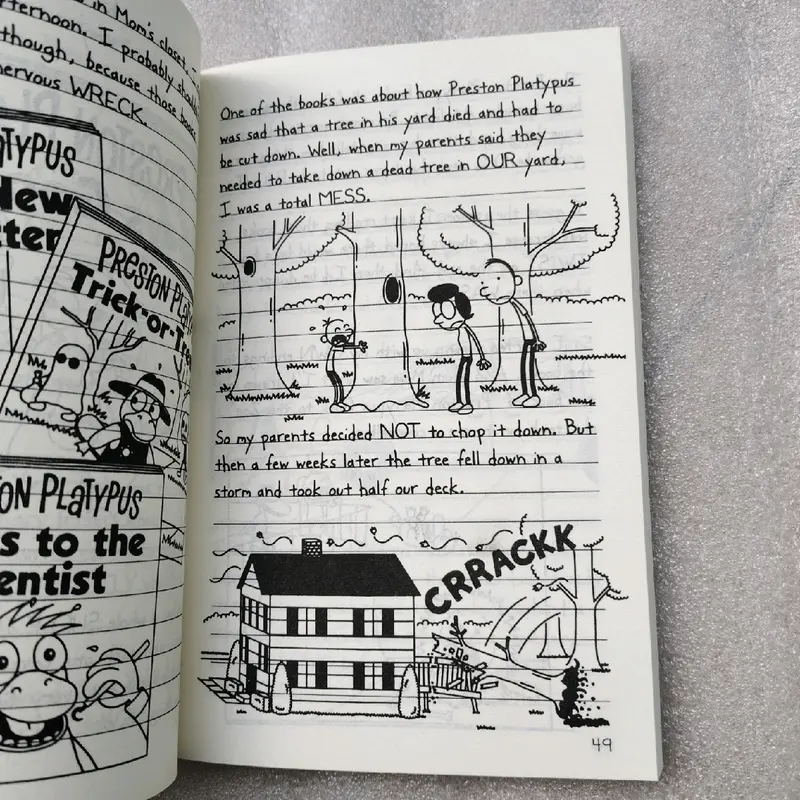 in Mom's closet
afternoon. I probably
though, because those
nervous WRECK.
New
PRESTON
Trick-or-
ON PLATYPUS
s to the
entist
One of the books was about how Preston Platypus
was sad that a tree in his yard died and had to
be cut down. Well, when my parents said they
needed to take down a dead tree in OUR yard,
I was a total MESS.
So my parents decided NOT to chop it down. But
then a few weeks later the tree fell down in a
storm and took out half our deck.
CRRACKK
49